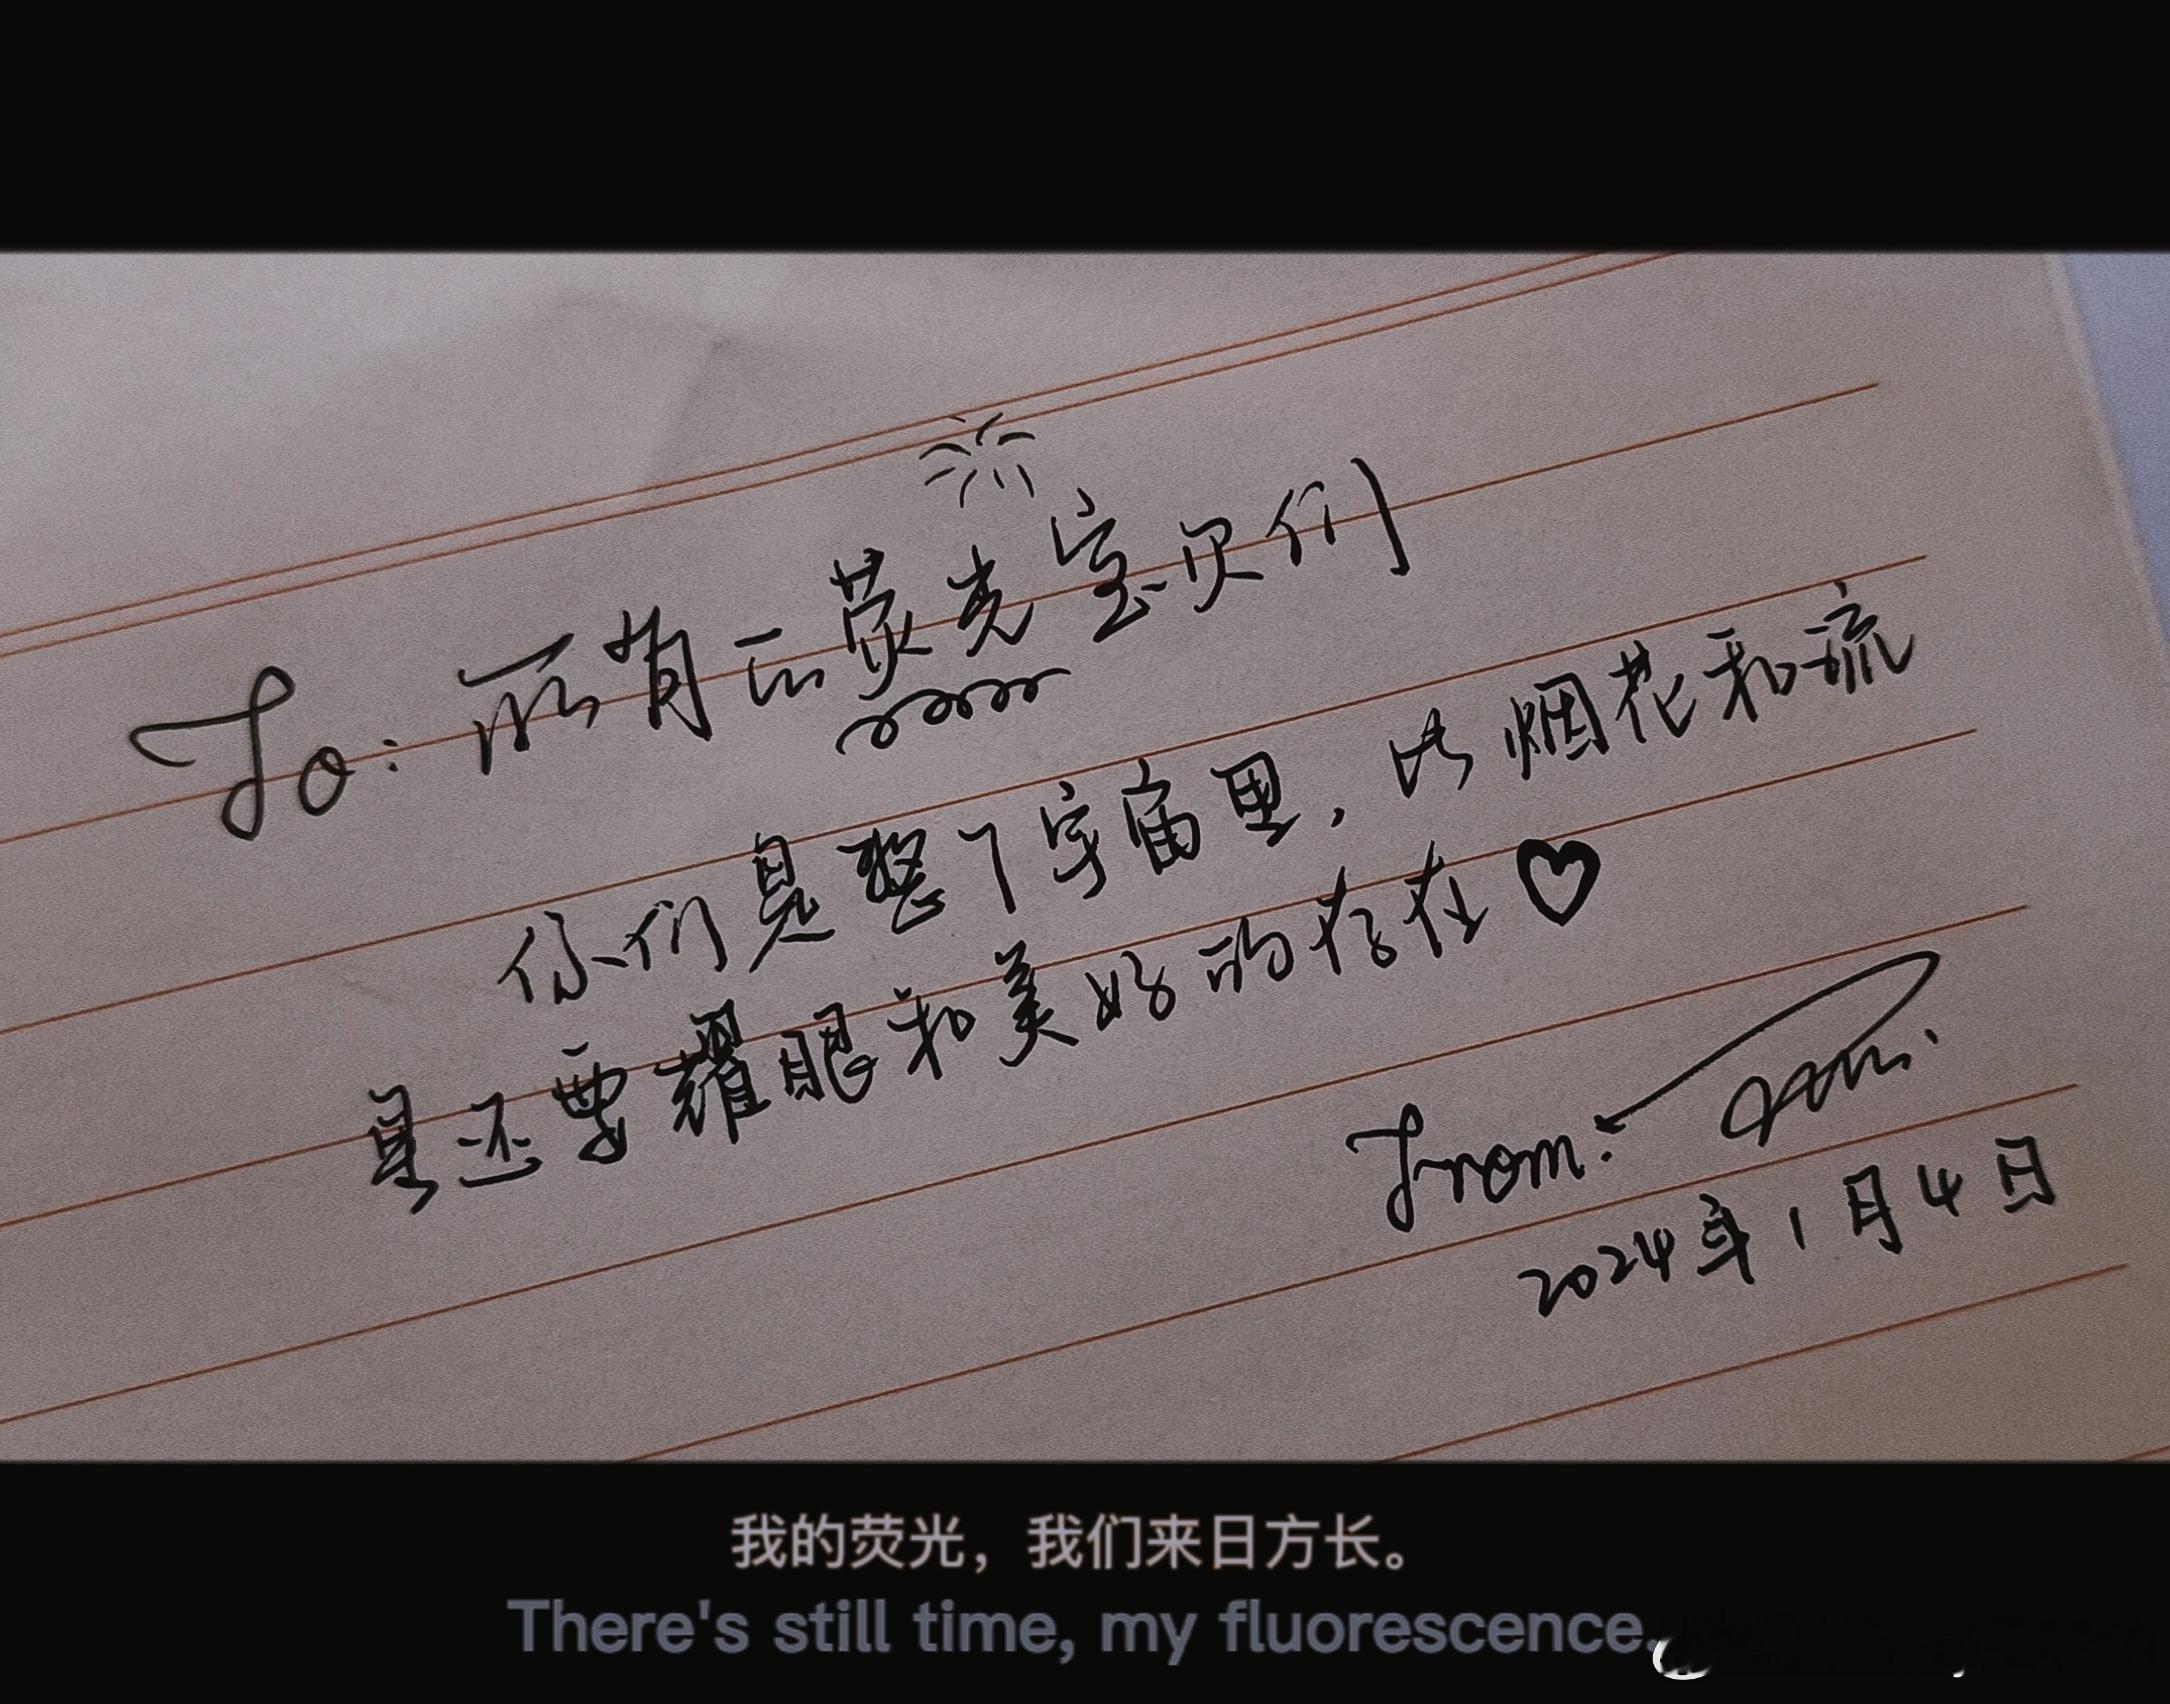 To: 所有的荧光宝贝们
你们是整个宇宙里，比烟花和流
星还要耀眼和美好的存在♡
From:
2024年1月4日
我的荧光，我们来日方长。
There's still time, my fluorescence.